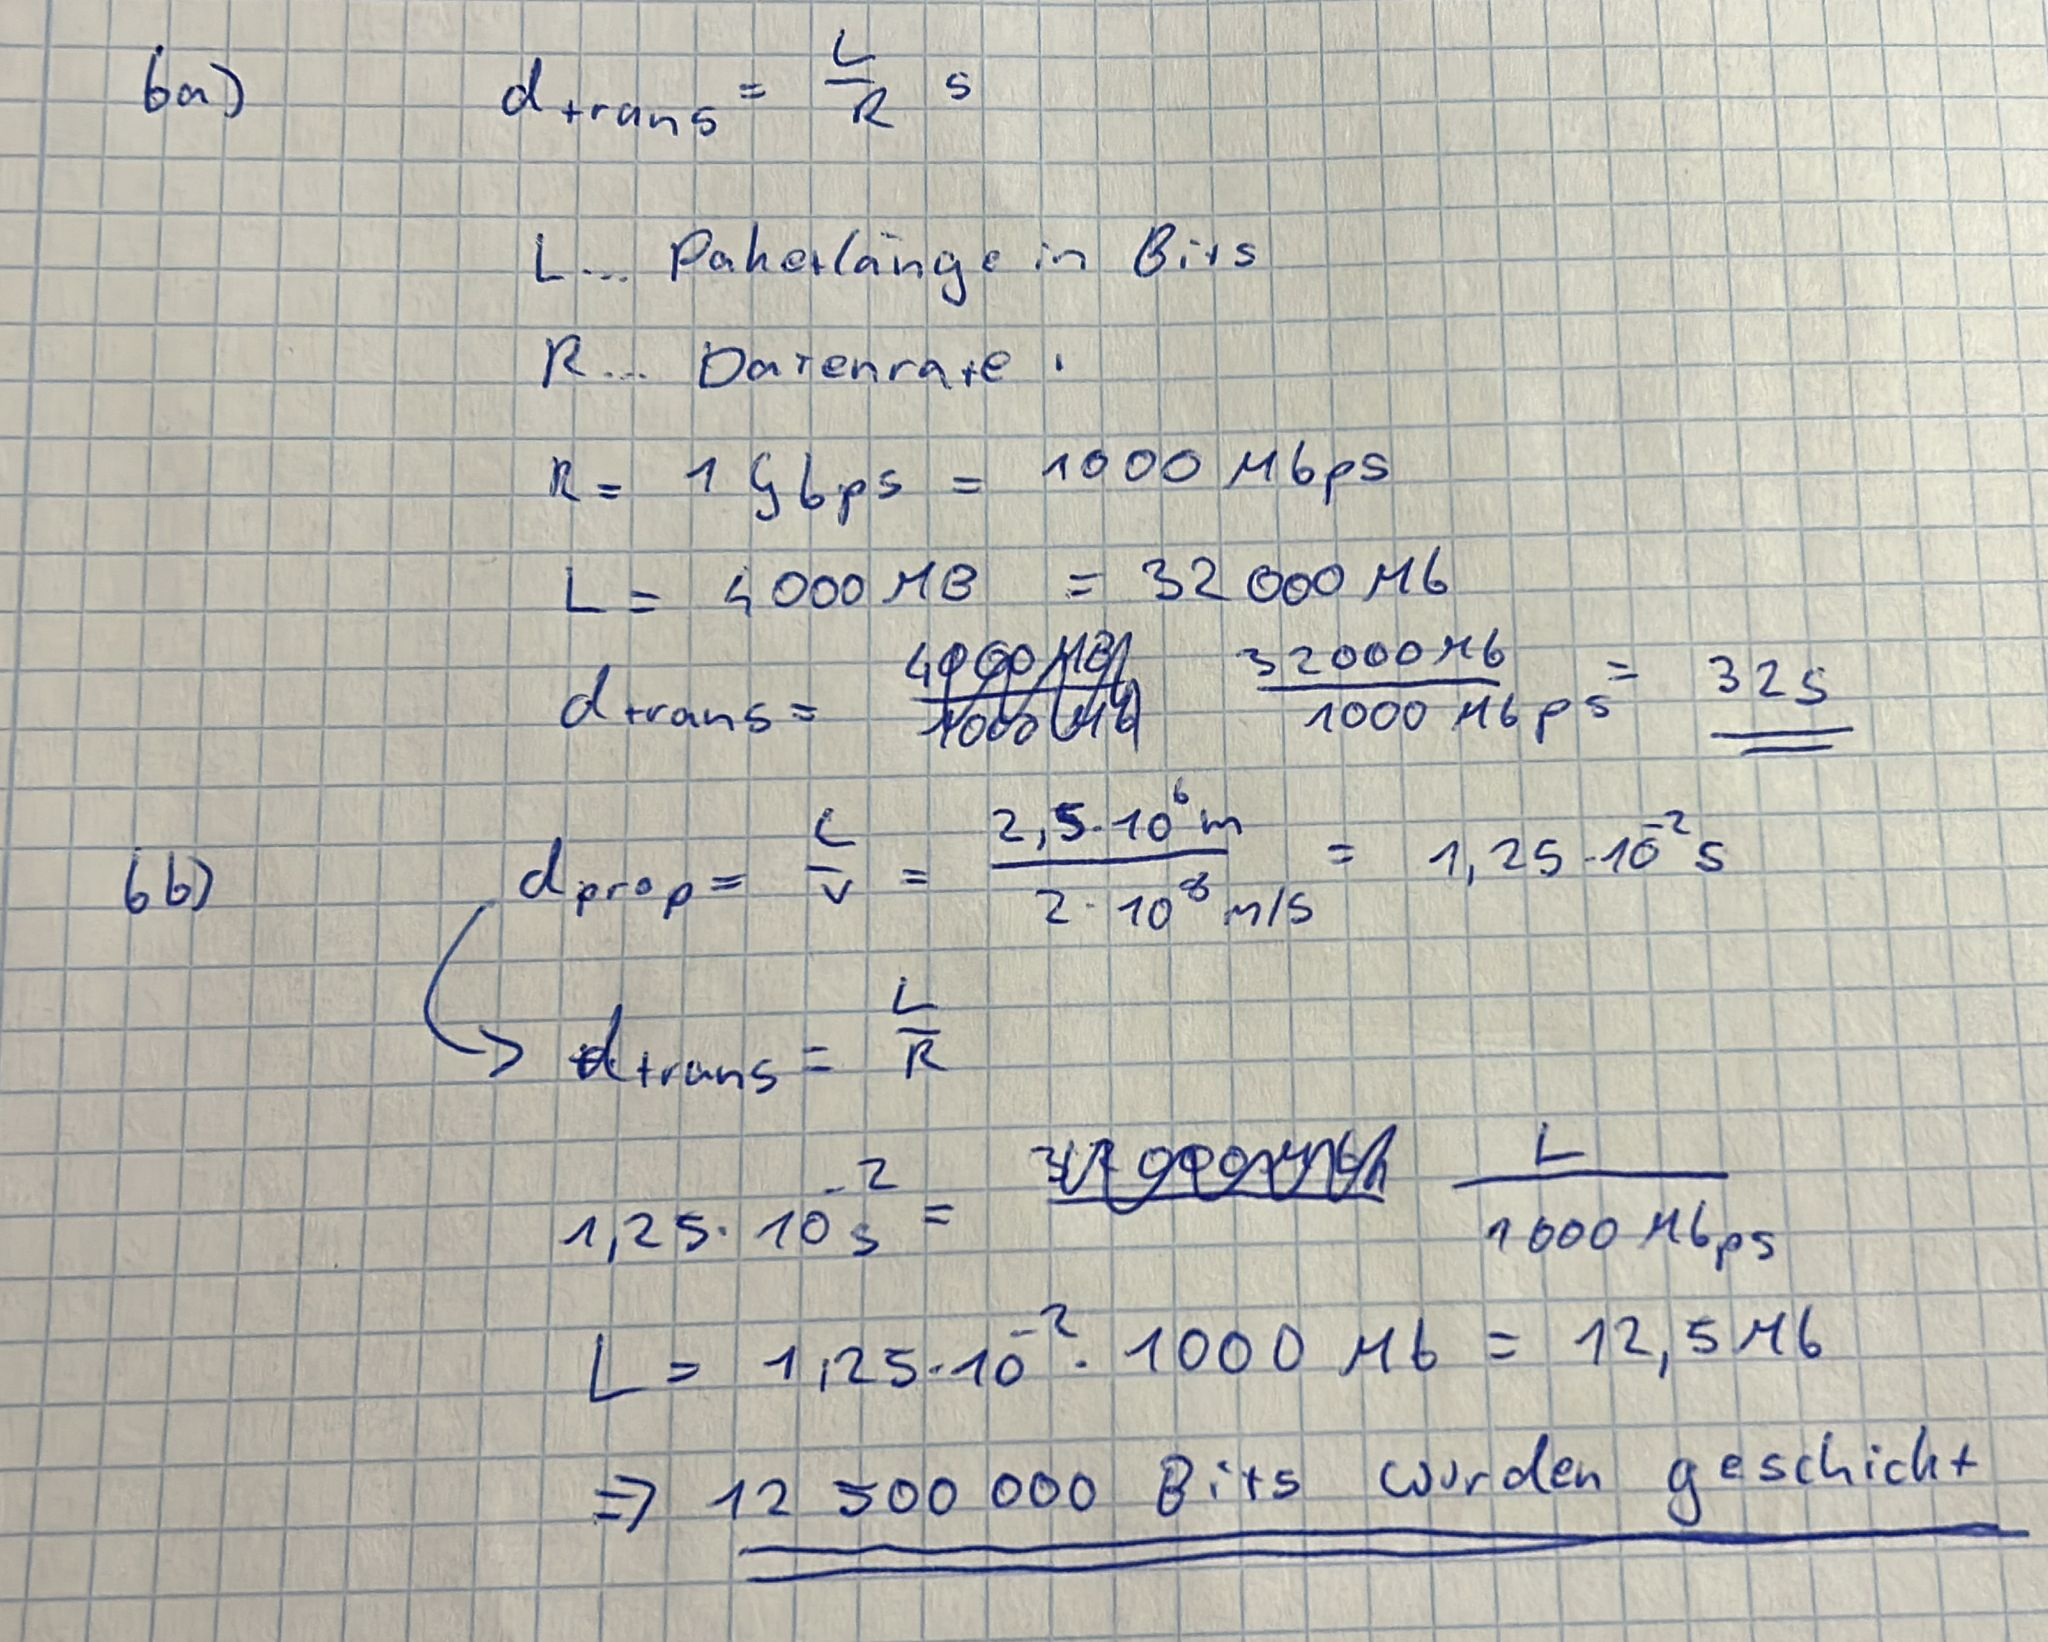 6a) d_trans = L/R s
L... Paketlänge in Bits
R... Datenrate.
R = 1 Gbps = 1000 Mbps
L = 4000 MB = 32 000 Mb
d_trans = 32000 Mb / 1000 Mbps = 32s
6b) d_prop = L/v = 2,5·10⁶ m / 2·10⁸ m/s = 1,25·10⁻² s
→ d_trans = L/R
1,25·10⁻² s = L / 1000 Mbps
L = 1,25·10⁻² · 1000 Mb = 12,5 Mb
⇒ 12 500 000 Bits wurden geschickt